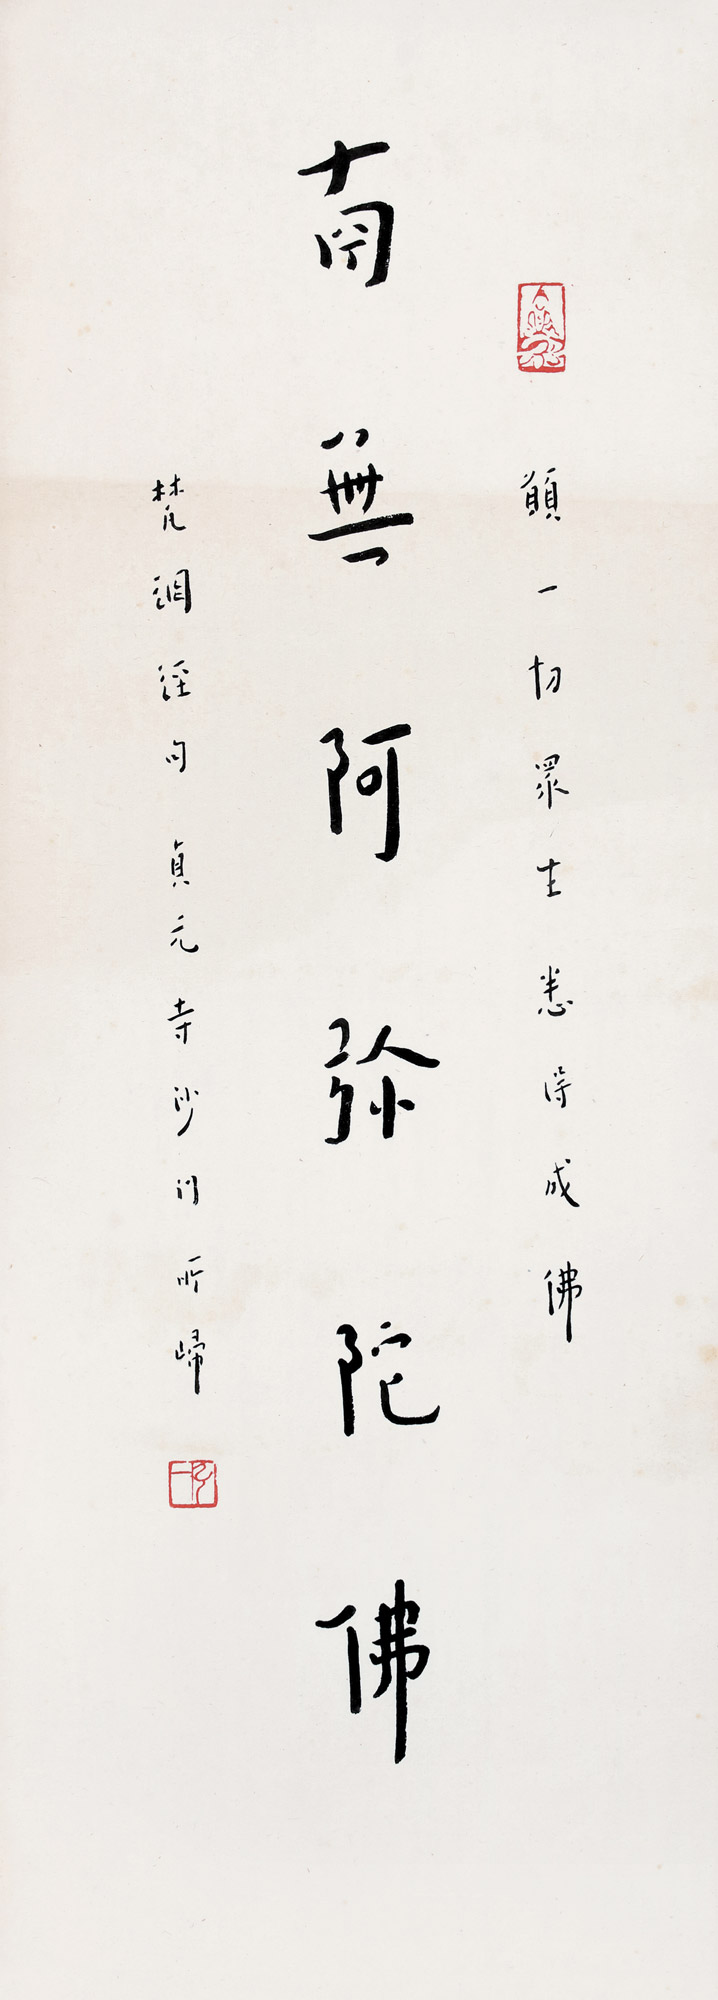 願一切眾生悉得成佛
南無阿弥陀佛
梵網經句 貞元寺沙門所歸
弘一